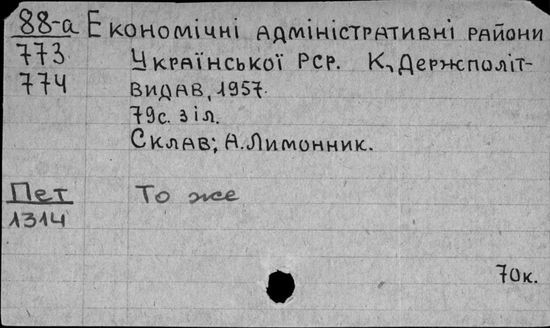 88-а Економічні адміністративні райони
773 Української РСР. К., Держполіт-
774 видав, 1957.
79с. з іл.
Склав; А.Лимонник.
Пет То же
1314
70к.